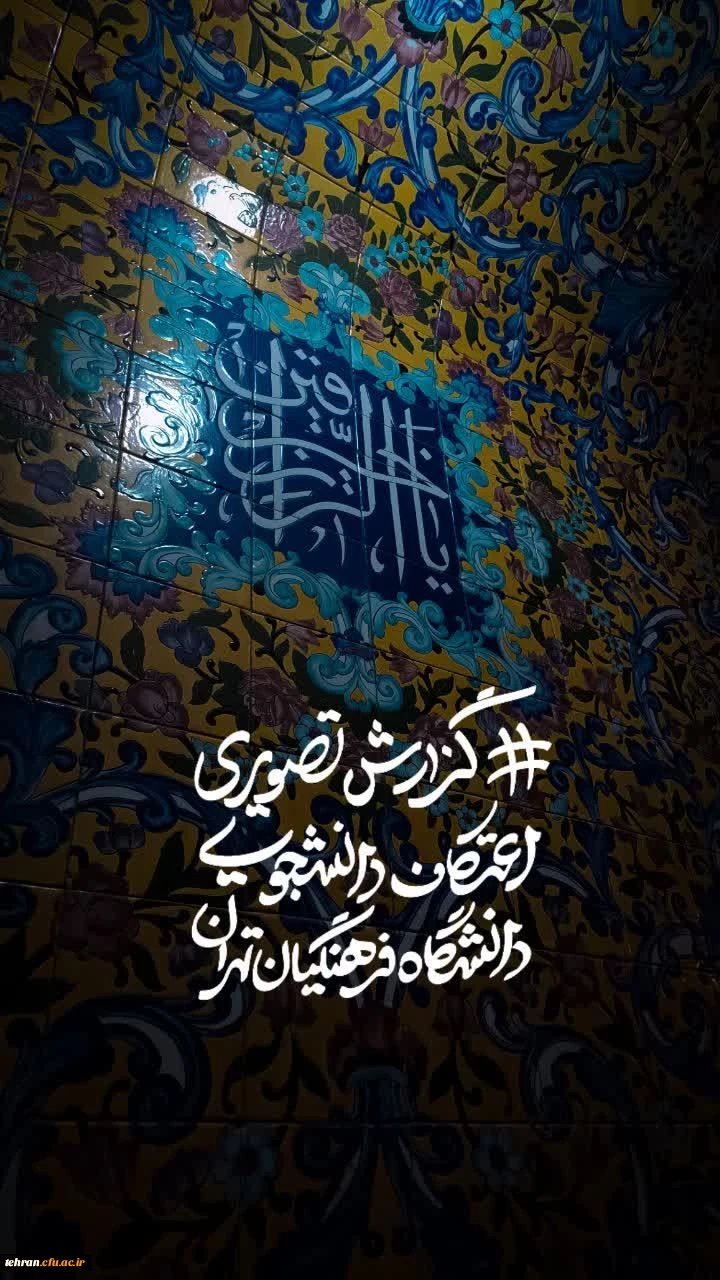 یا خیر الرّازقین
#گزارش تصویری
اعتکاف دانشجویی
دانشگاه فرهنگیان تهران
tehran.cfu.ac.ir